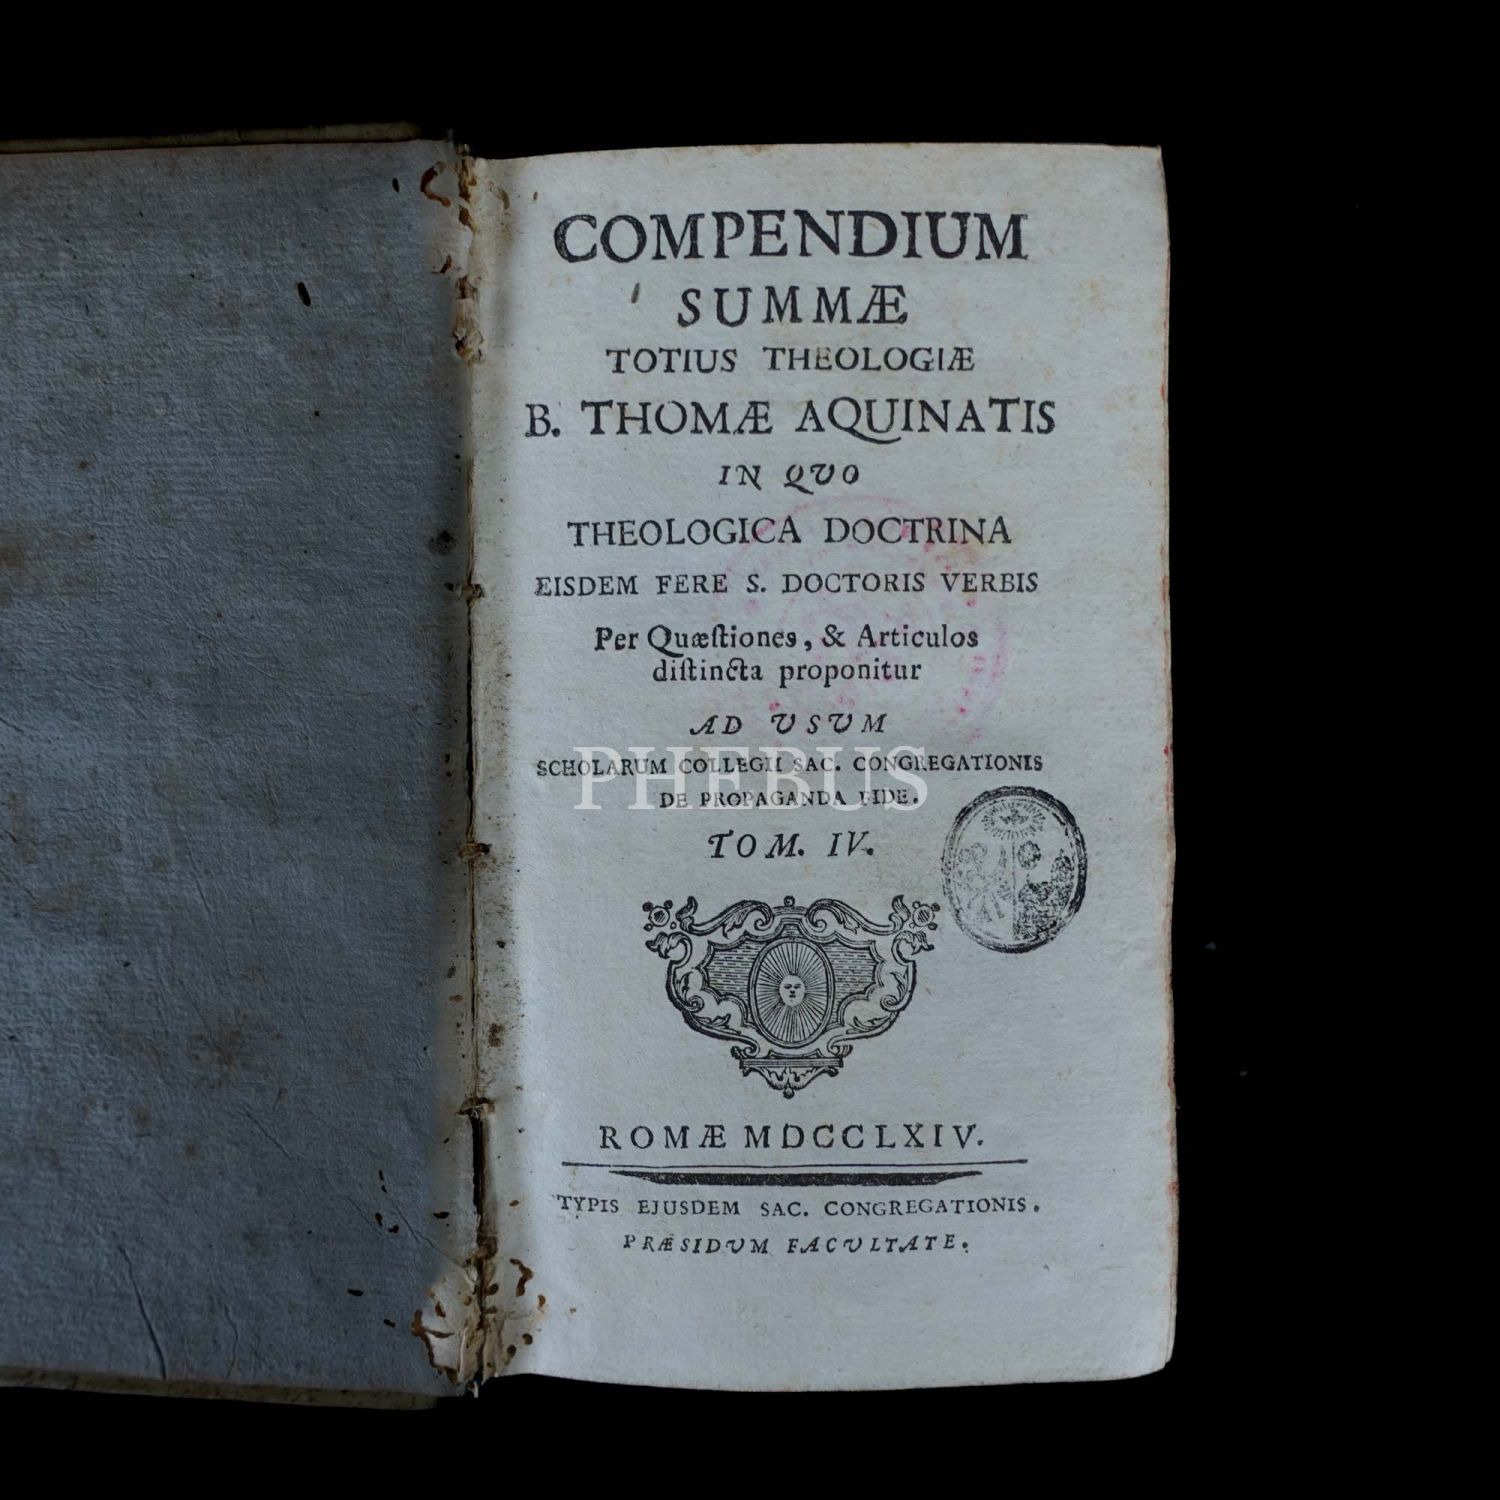 COMPENDIUM
SUMMÆ
TOTIUS THEOLOGIÆ
B. THOMÆ AQUINATIS
IN QVO
THEOLOGICA DOCTRINA
EISDEM FERE S. DOCTORIS VERBIS
Per Quæſtiones, & Articulos
diſtincta proponitur
AD USUM
PHEBUS
SCHOLARUM COLLEGII SAC. CONGREGATIONIS
DE PROPAGANDA FIDE.
TOM. IV.
ROMÆ MDCCLXIV.
TYPIS EJUSDEM SAC. CONGREGATIONIS.
PRÆSIDUM FACULTATE.